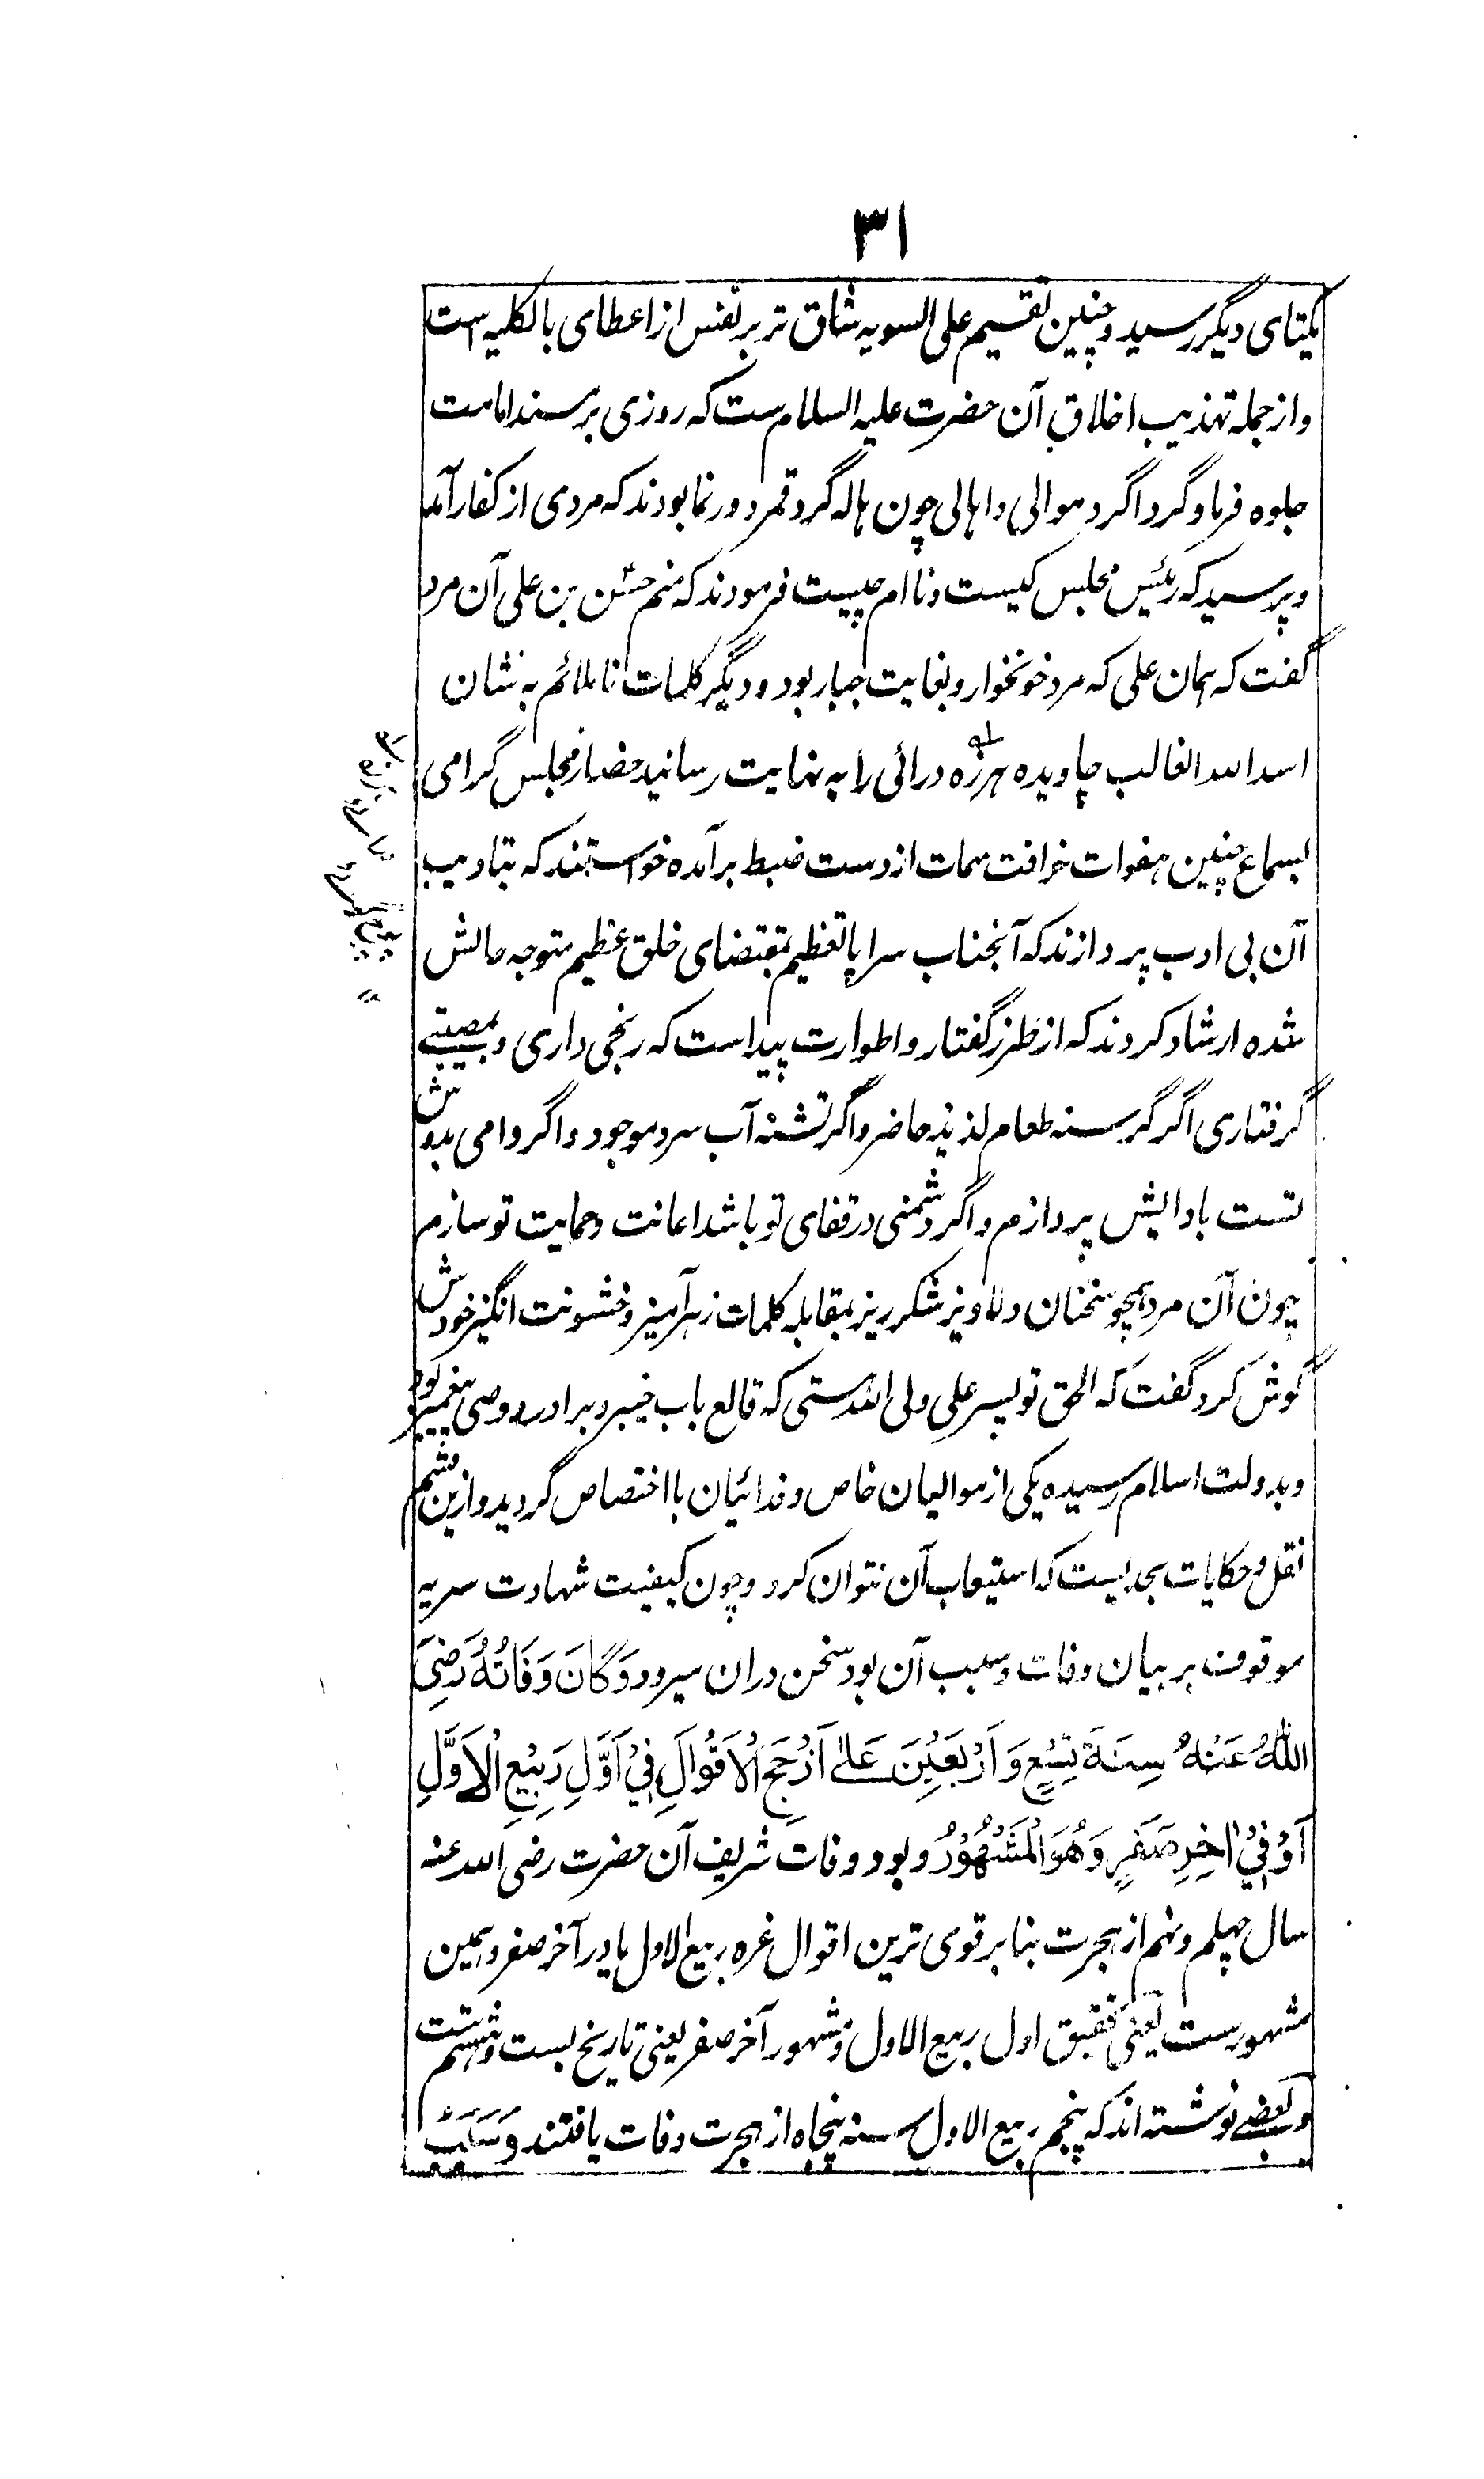 ۳۱
یکتای دیگر رسید و چنین تقسیم علی السویه شاق تر بر نفس از اعطای بالکلیه است
و از جمله تهذیب اخلاق آن حضرت علیه السلام ست که روزی بر مسند امامت
جلوه فرما و گرداگرد موالی و اهالی چون هاله گرد قمر دورنما بودند که مردی از کفار آمد
و پرسید که رئیس مجلس کیست و نام چیست فرمودند که منم حسن بن علی آن مرد
گفت که همان علی که مرد خونخوار و بغایت جبار بود و دیگر کلمات ناملائم به نشان
اسد الله الغالب چاویده هرزه درائی را به نهایت رسانید حضار مجلس گرامی
بسماع چنین هفوات خرافت سمات از دست ضبط برآمده خواستند که بتادیب
آن بی ادب پردازند که آنجناب سراپا تعظیم بمقتضای خلق عظیم متوجه حالش
شده ارشاد کردند که از طرز گفتار و اطوارت پیداست که رنجی داری و بمصیبتے
گرفتاری اگر گرسنه طعام لذیذ حاضر و اگر تشنه آب سرد موجود و اگر وامی بدوش
تست بادایش پردازم و اگر دشمنی در قفای تو باشد اعانت و حمایت تو سازم
چون آن مرد همچو سخنان دلاویز شکرریز بمقابله کلمات زهرآمیز و خشونت انگیز خودش
گوش کرد گفت که الحق تو پسر علی ولی الله هستی که قالع باب خیبر و برادر و وصی پیغمبر بود
و بدولت اسلام رسیده یکی از موالیان خاص و فدائیان با اختصاص گردید و ازین قسم
نقل و حکایات بحدیست که استیعاب آن نتوان کرد و چون کیفیت شهادت سریه
موقوف بر بیان وفات و سبب آن بود سخن دران میرود وَكَانَ وَفَاتُهُ رَضِيَ
اللّٰهُ عَنْهُ سِنَةَ تِسْعٍ وَ اَرْبَعِيْنَ عَلٰے اَرْجَحِ الْاَقْوَالِ فِيْ اَوَّلِ رَبِيْعِ الْاَوَّلِ
اَوْ فِيْ اٰخِرِ صَفَرٍ وَهُوَ الْمَشْهُوْرُ و بود وفات شریف آن حضرت رضی الله عنه
سال چهلم و نهم از هجرت بنا بر قوی ترین اقوال غره ربیع الاول یا در آخر صفر و همین
مشهورست یعنی تحقیق اول ربیع الاول و مشهور آخر صفر یعنی تاریخ بست و هشتم
و بعضے نوشته اند که پنجم ربیع الاول سنه پنجاه از هجرت وفات یافتند وَسَبَبُ